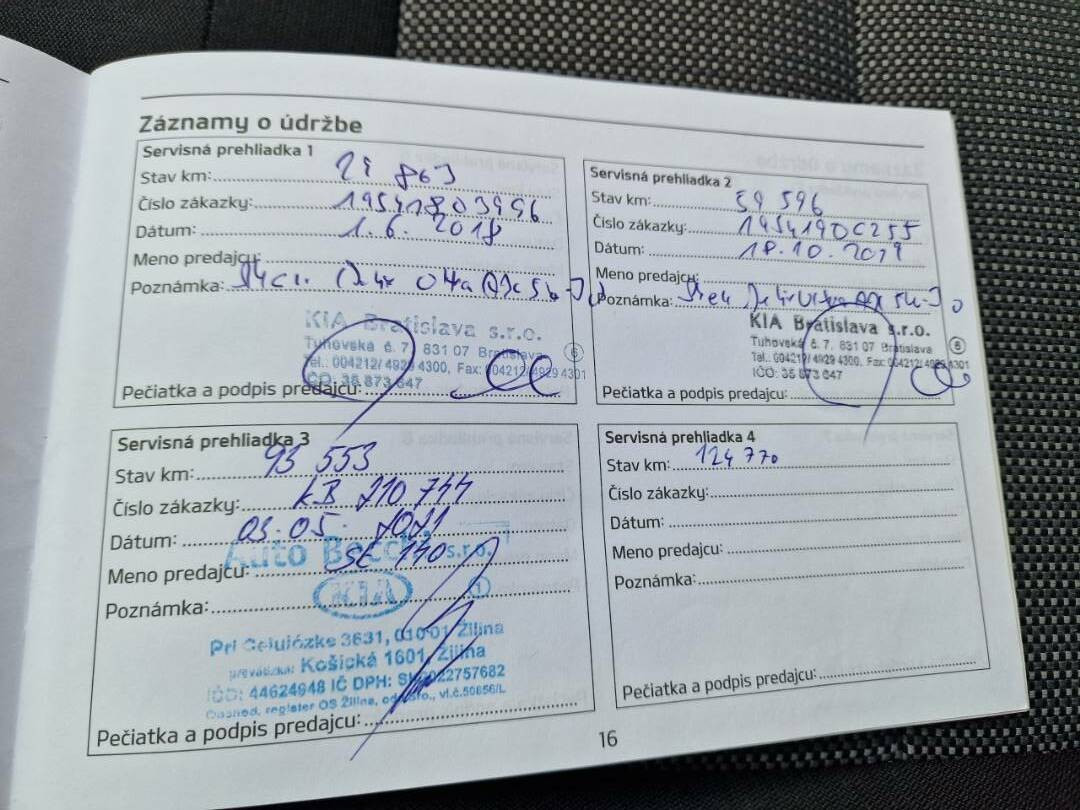 Záznamy o údržbe
Servisná prehliadka 1
Stav km:
Číslo zákazky: 19541803996
Dátum: 1.6. 2018
Meno predajcu:
Poznámka:
KIA Bratislava s.r.o.
Tuhovská č. 7, 831 07 Bratislava
Tel.: 004212/ 4929 4300, Fax: 004212/ 4929 4301
IČO: 35 873 647
6
Pečiatka a podpis predajcu:
Servisná prehliadka 2
Stav km: 59 596
Číslo zákazky:
Dátum: 18.10.
Meno predajcu:
Poznámka:
KIA Bratislava s.r.o.
Tuhovská č. 7, 831 07 Bratislava
Tel.: 004212/ 4929 4300, Fax: 004212/ 4929 4301
IČO: 35 873 647
6
Pečiatka a podpis predajcu:
Servisná prehliadka 3
Stav km: 93 553
Číslo zákazky: KB 210 744
Dátum: 03.05. 2021
Meno predajcu: SE 140
Auto s.r.o.
KIA
1
Poznámka:
Pri Celulózke 3631, 010 01 Žilina
prevádzka: Košická 1601, Žilina
IČO: 44624948 IČ DPH:
Obchod. register OS Žilina, vl.č.50856/L
Pečiatka a podpis predajcu:
Servisná prehliadka 4
Stav km: 124 770
Číslo zákazky:
Dátum:
Meno predajcu:
Poznámka:
Pečiatka a podpis predajcu:
16